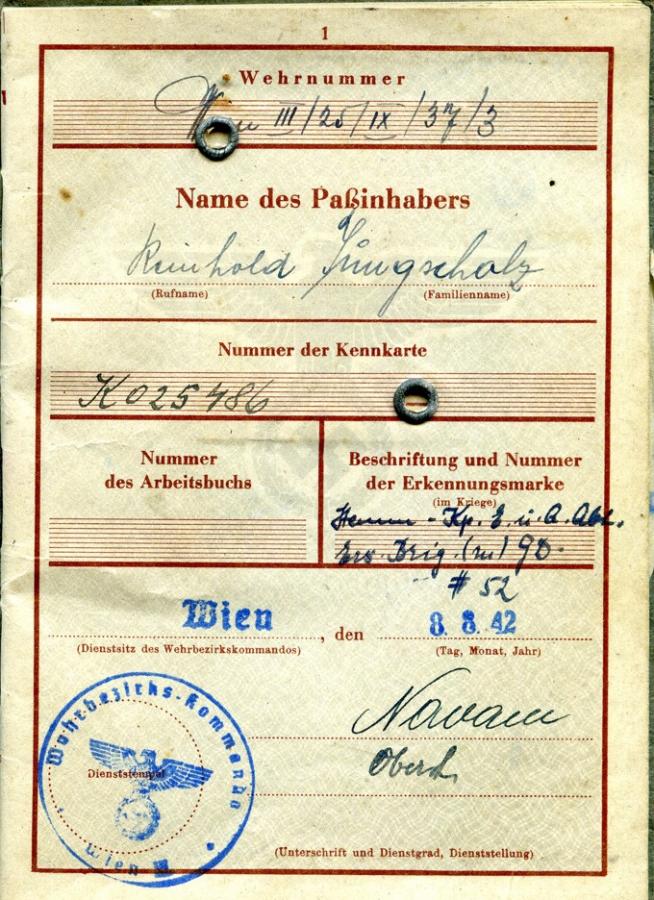 1
Wehrnummer
Wien III/25/IX/37/3
Name des Paßinhabers
Reinhold Jungscholz
(Rufname) (Familienname)
Nummer der Kennkarte
K025486
Nummer
des Arbeitsbuchs
Beschriftung und Nummer
der Erkennungsmarke
(im Kriege)
Kp. E. u. A. Abt.
Ers. Brig. (m) 90.
# 52
Wien, den 8. 8. 42
(Dienstsitz des Wehrbezirkskommandos) (Tag, Monat, Jahr)
Wehrbezirks-Kommando
Dienststempel
Wien
Oberst
(Unterschrift und Dienstgrad, Dienststellung)